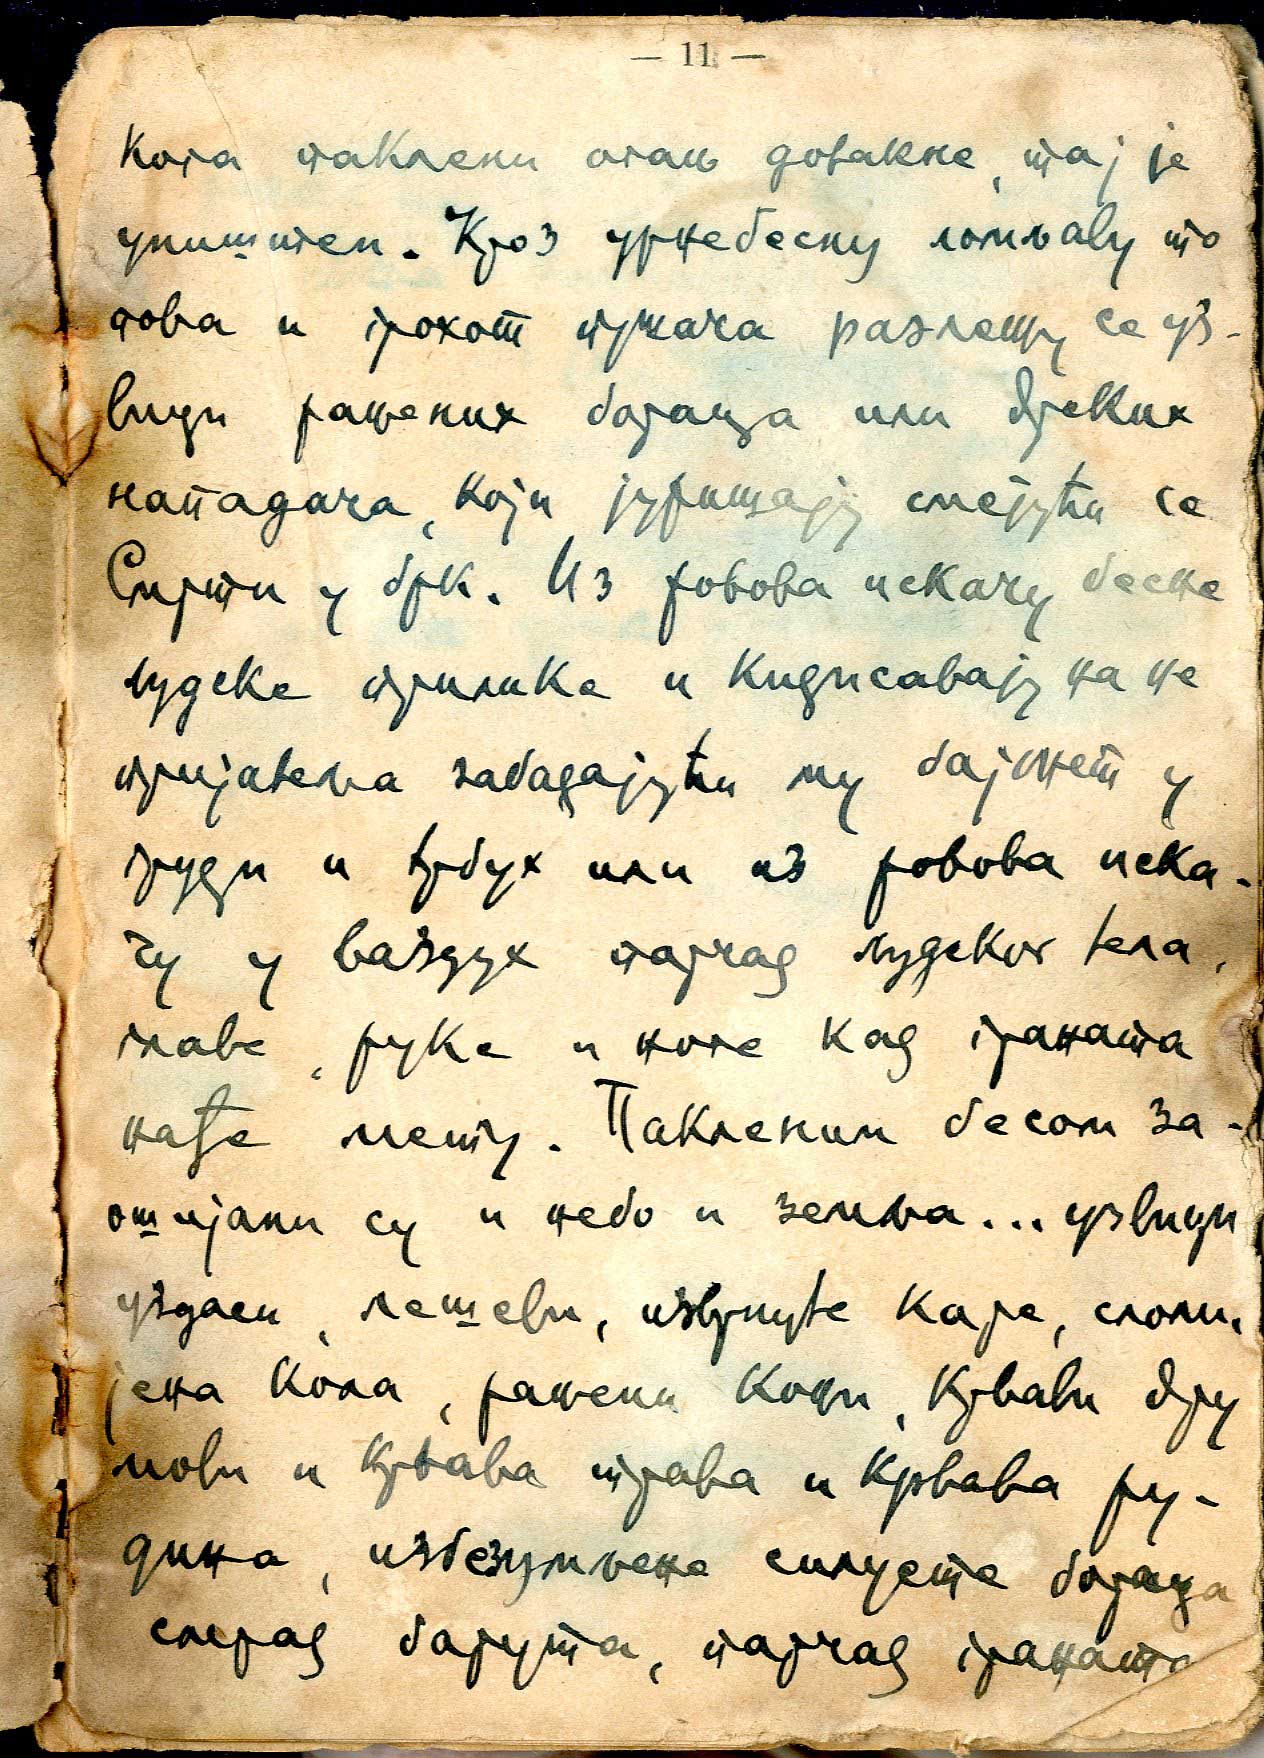 — 11 —
кога паклени огањ довакне, тај је
уништен. Кроз урнебесну ломљаву то
пова и грохот пушака разлежу се уз-
вици рањених бораца или дреких
нападача, који јуришају смејући се
Смрти у брк. Из ровова искачу бесне
људске прилике и кидисавају на не
пријатеља забадајући му бајонет у
груди и трбух или из ровова иска-
чу у ваздух парчад људског тела,
главе, руке и ноге кад граната
нађе мету. Пакленим бесом за-
опијани су и небо и земља... узвици
уздаси, лешеви, изврнуте каре, слом-
јена кола, рањени коњи, крвави дру
мови и крвава трава и крвава ру-
дина, избезумљене силуете бораца
смрад барута, парчад граната